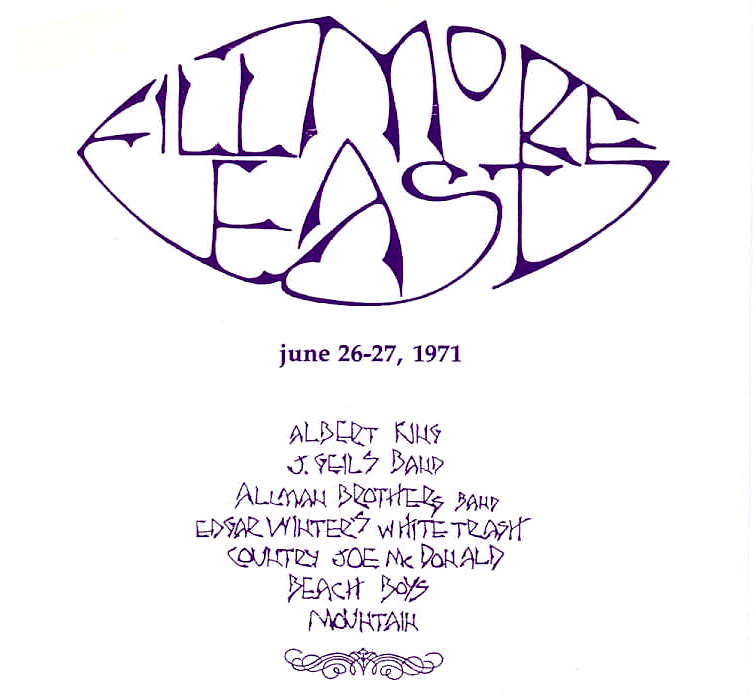 FILLMORE
EAST
june 26-27, 1971
ALBERT KING
J. GEILS BAND
ALLMAN BROTHERS BAND
EDGAR WINTER'S WHITE TRASH
COUNTRY JOE Mc DONALD
BEACH BOYS
MOUNTAIN